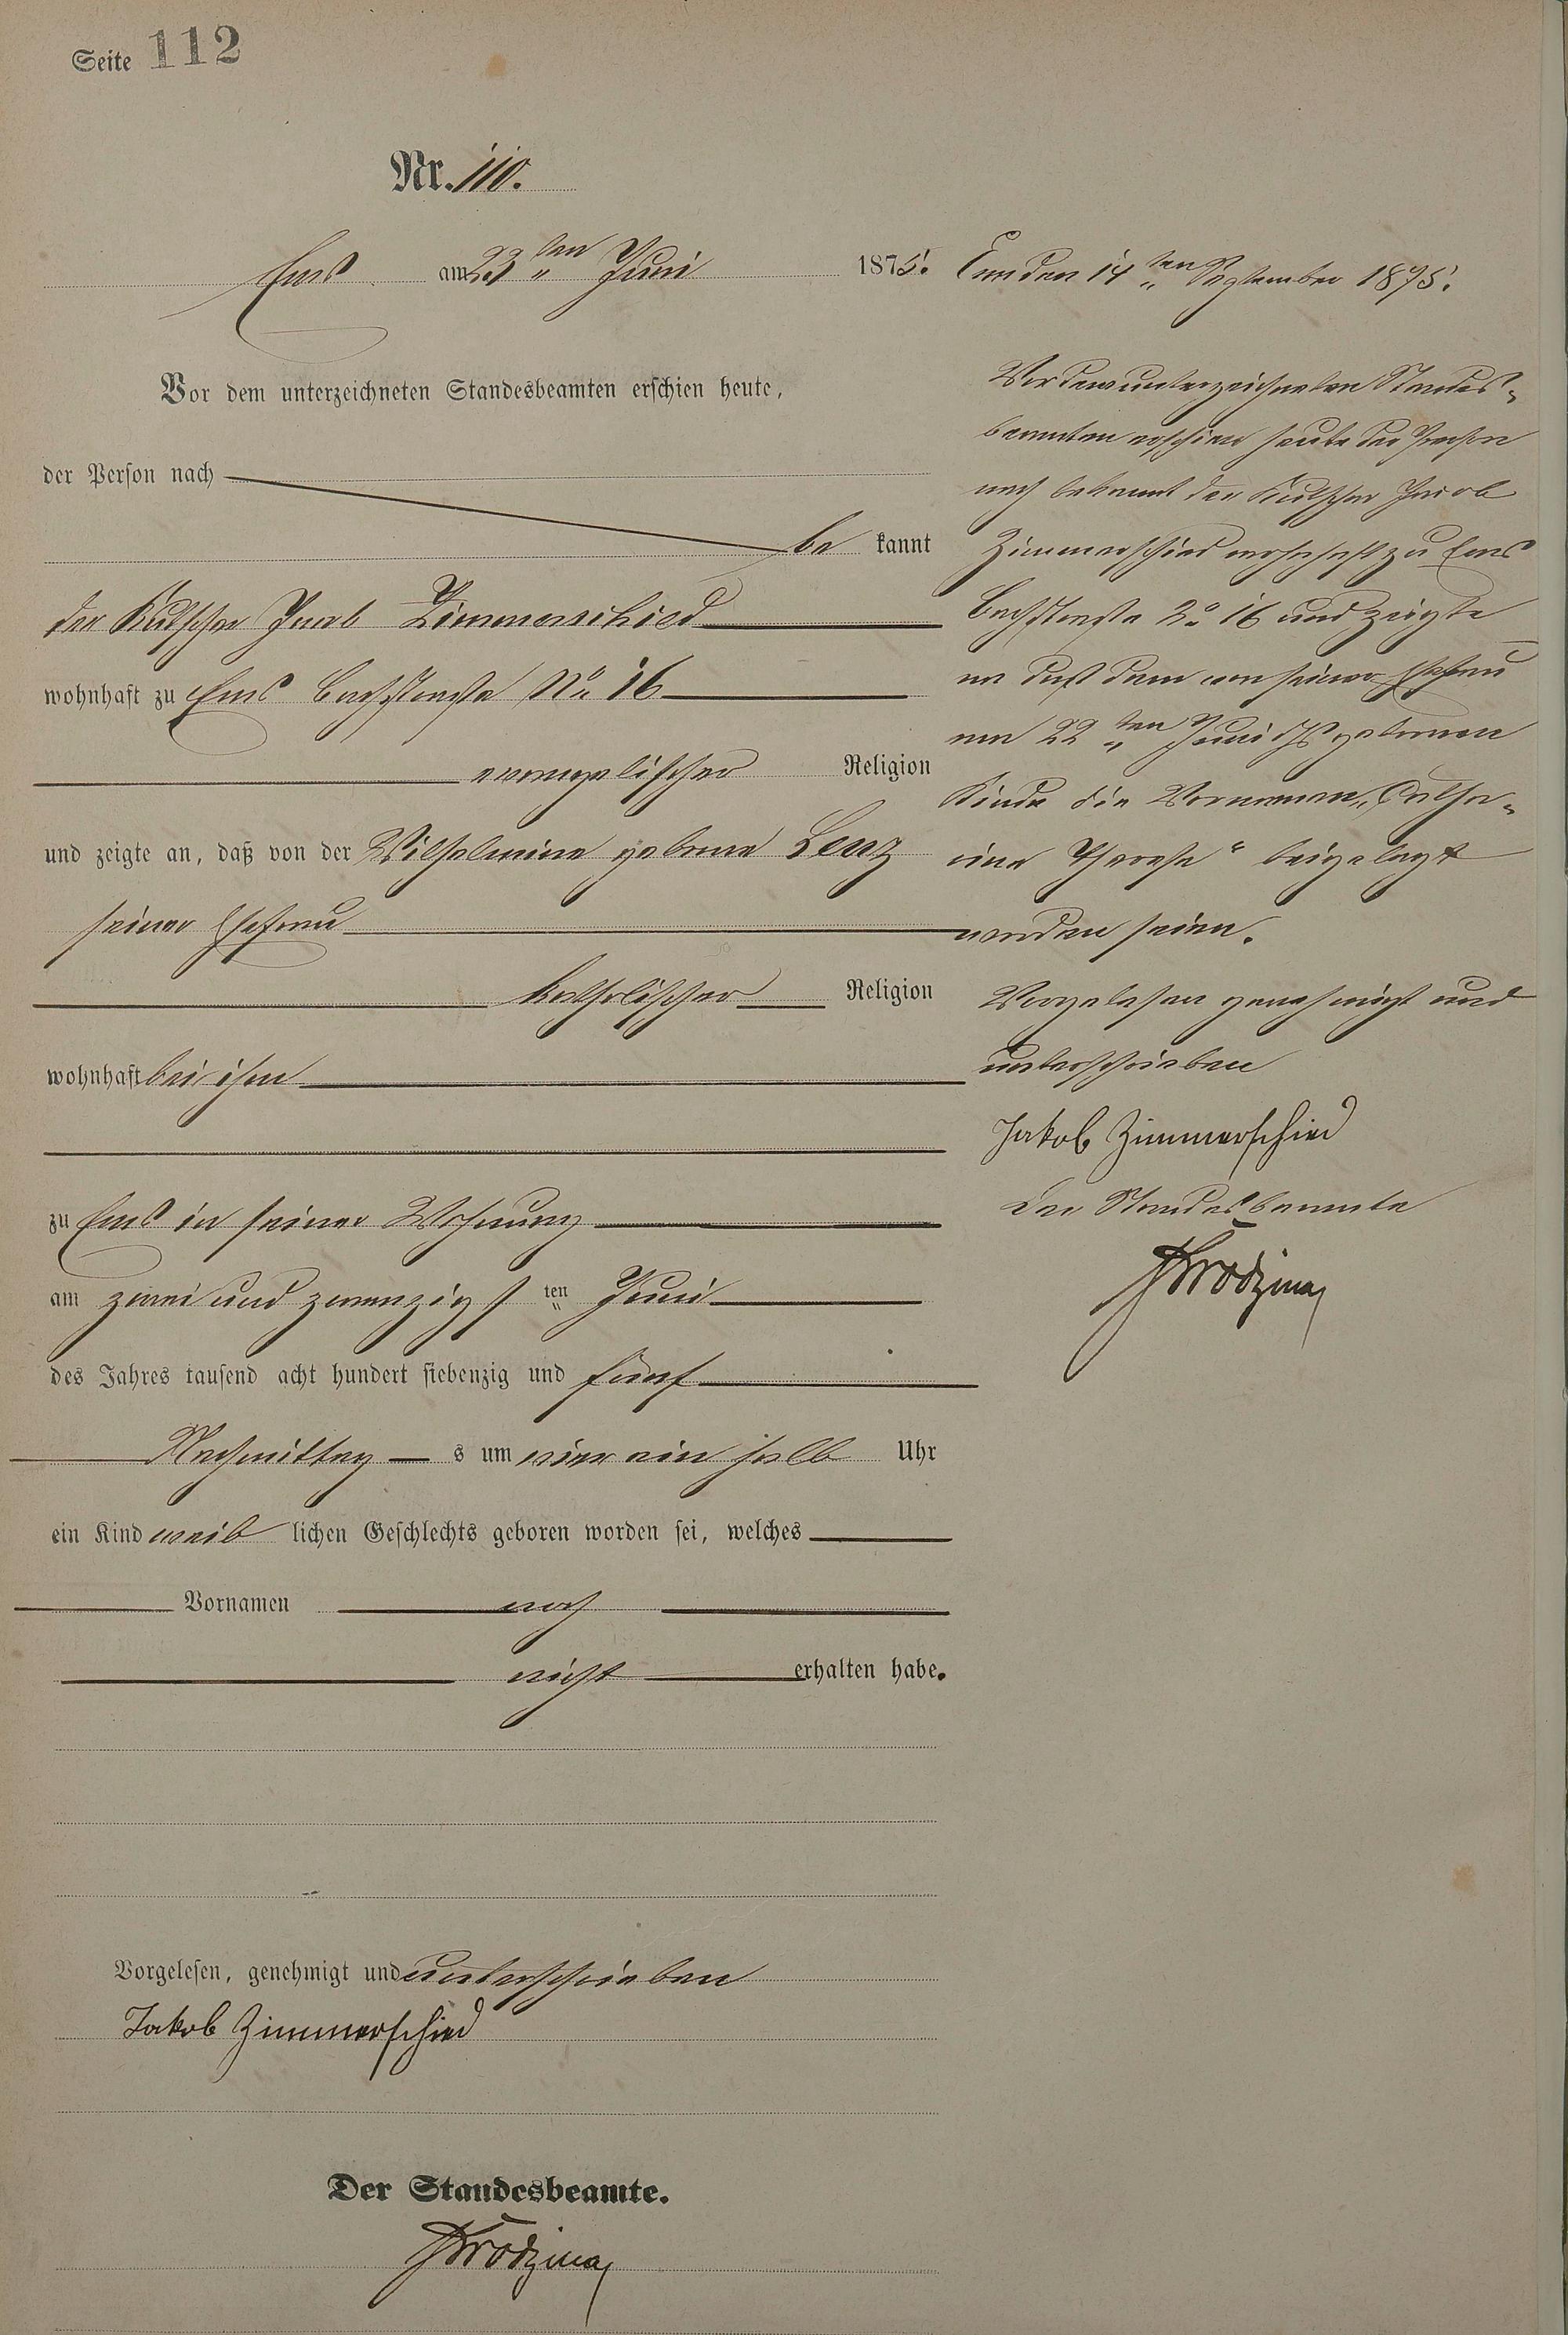 Seite 112
Nr. 110.
Ems am 23ten Juni 1875.
Vor dem unterzeichneten Standesbeamten erschien heute,
der Person nach
be kannt
der Kutscher Jacob Zimmerschied
wohnhaft zu Ems Bachstraße No 16
evangelischer Religion
und zeigte an, daß von der Wilhelmine geborene Lenz
seiner Ehefrau
katholischer Religion
wohnhaft bei ihm
zu Ems in seiner Wohnung
am zwei und zwanzigsten Juni
des Jahres tausend acht hundert siebenzig und fünf
Nachmittag s um vier ein halb Uhr
ein Kind weib lichen Geschlechts geboren worden sei, welches
Vornamen noch
nicht erhalten habe.
Vorgelesen, genehmigt und unterschrieben
Jakob Zimmerschied
Der Standesbeamte.
Ems den 14ten September 1875.
Vor dem unterzeichneten Standes-
beamten erschien heute der Person
nach bekannt der Kutscher Jacob
Zimmerschied wohnhaft zu Ems
Bachstraße No 16 und zeigte
an daß dem von seiner Ehefrau
am 22ten Juni geborenen
Kinde die Vornamen „Catha-
rina Therese" beigelegt
worden seien.
Vorgelesen genehmigt und
unterschrieben
Jakob Zimmerschied
Der Standesbeamte